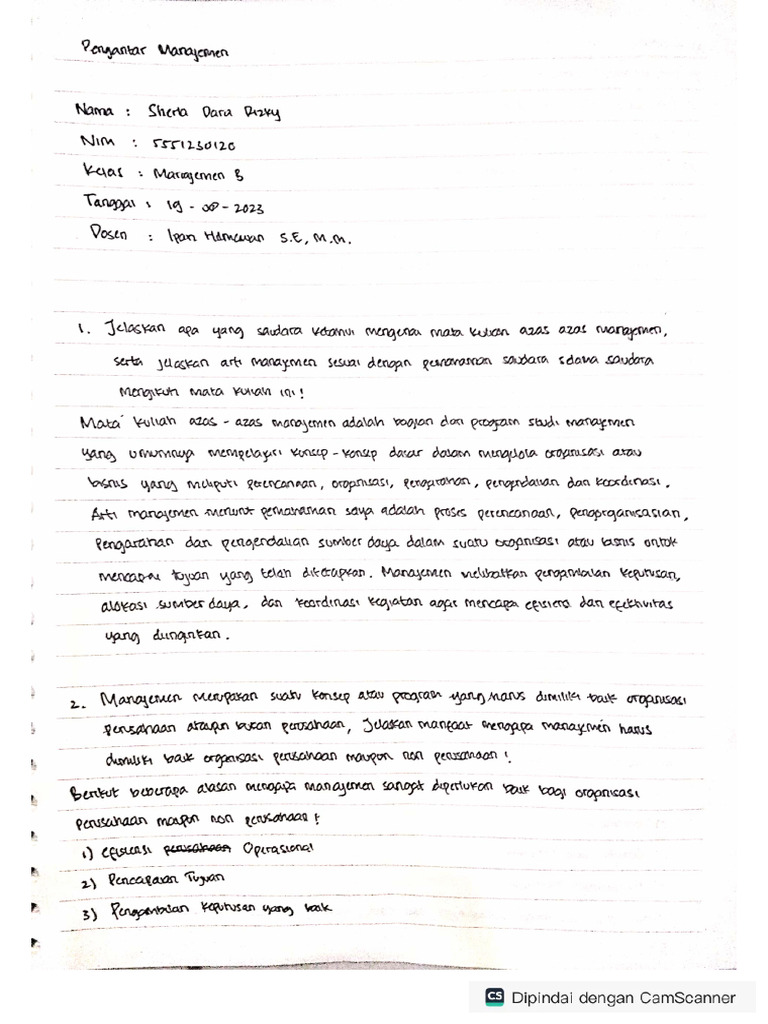 Pengantar Manajemen
Nama : Sherla Dara Rizky
Nim : 5551230120
Kelas : Manajemen B
Tanggal : 19 - 08 - 2023
Dosen : Ipan Hermawan S.E, M.M.
1. Jelaskan apa yang saudara ketahui mengenai mata kuliah azas azas manajemen,
serta jelaskan arti manajemen sesuai dengan pemahaman saudara selama saudara
mengikuti mata kuliah ini !
Mata kuliah azas - azas manajemen adalah bagian dari program studi manajemen
yang umumnya mempelajari konsep - konsep dasar dalam mengelola organisasi atau
bisnis yang meliputi perencanaan, organisasi, pengarahan, pengendalian dan koordinasi.
Arti manajemen menurut pemahaman saya adalah proses perencanaan, pengorganisasian,
pengarahan dan pengendalian sumber daya dalam suatu organisasi atau bisnis untuk
mencapai tujuan yang telah ditetapkan. Manajemen melibatkan pengambilan keputusan,
alokasi sumber daya, dan koordinasi kegiatan agar mencapai efisiensi dan efektivitas
yang diinginkan.
2. Manajemen merupakan suatu konsep atau program yang harus dimiliki baik organisasi
perusahaan ataupun bukan perusahaan, Jelaskan manfaat mengapa manajemen harus
dimiliki baik organisasi perusahaan maupun non perusahaan !
Berikut beberapa alasan mengapa manajemen sangat diperlukan baik bagi organisasi
perusahaan maupun non perusahaan !
1) efisiensi perusahaan Operasional
2) Pencapaian Tujuan
3) Pengambilan keputusan yang baik
CS Dipindai dengan CamScanner